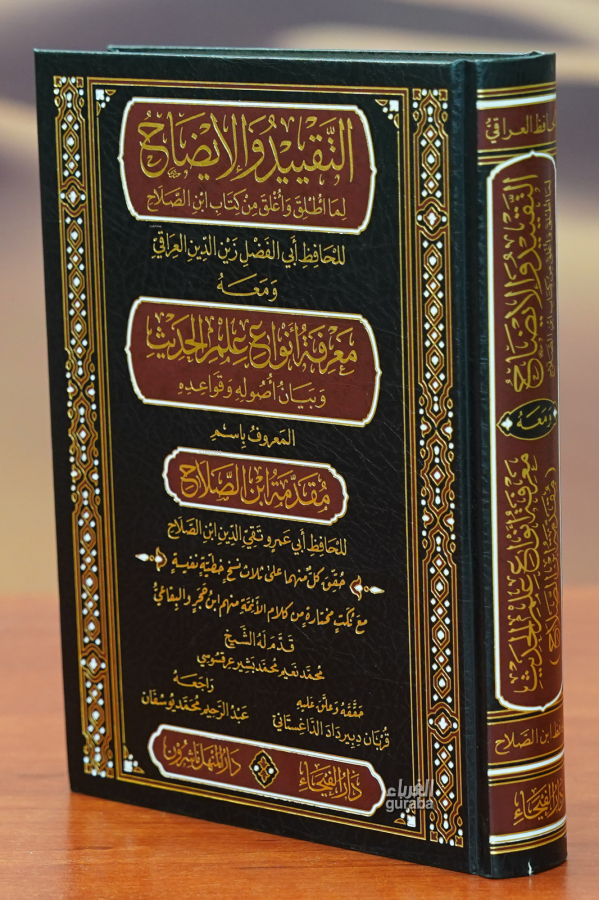 التقييد والإيضاح
لما أطلق وأغلق من كتاب ابن الصلاح
للحافظ أبي الفضل زين الدين العراقي
ومعه
معرفة أنواع علم الحديث
وبيان أصوله وقواعده
المعروف باسم
مقدمة ابن الصلاح
للحافظ أبي عمرو تقي الدين ابن الصلاح
حقق كل منهما على ثلاث نسخ خطية نفيسة
مع نكت مختارة من كلام الأئمة منهم ابن حجر والبقاعي
قدم له الشيخ
محمد نعيم محمد بشير عرقسوسي
حققه وعلق عليه
قربان دبير داد الداغستاني
راجعه
عبد الرحيم محمد يوسفان
دار الفيحاء
دار المنهل ناشرون
الغرباء
guraba
الحافظ العراقي
التقييد والإيضاح
لما أطلق وأغلق من كتاب ابن الصلاح
ومعه
معرفة أنواع علم الحديث
(مقدمة ابن الصلاح)
ابن الصلاح
دار الفيحاء